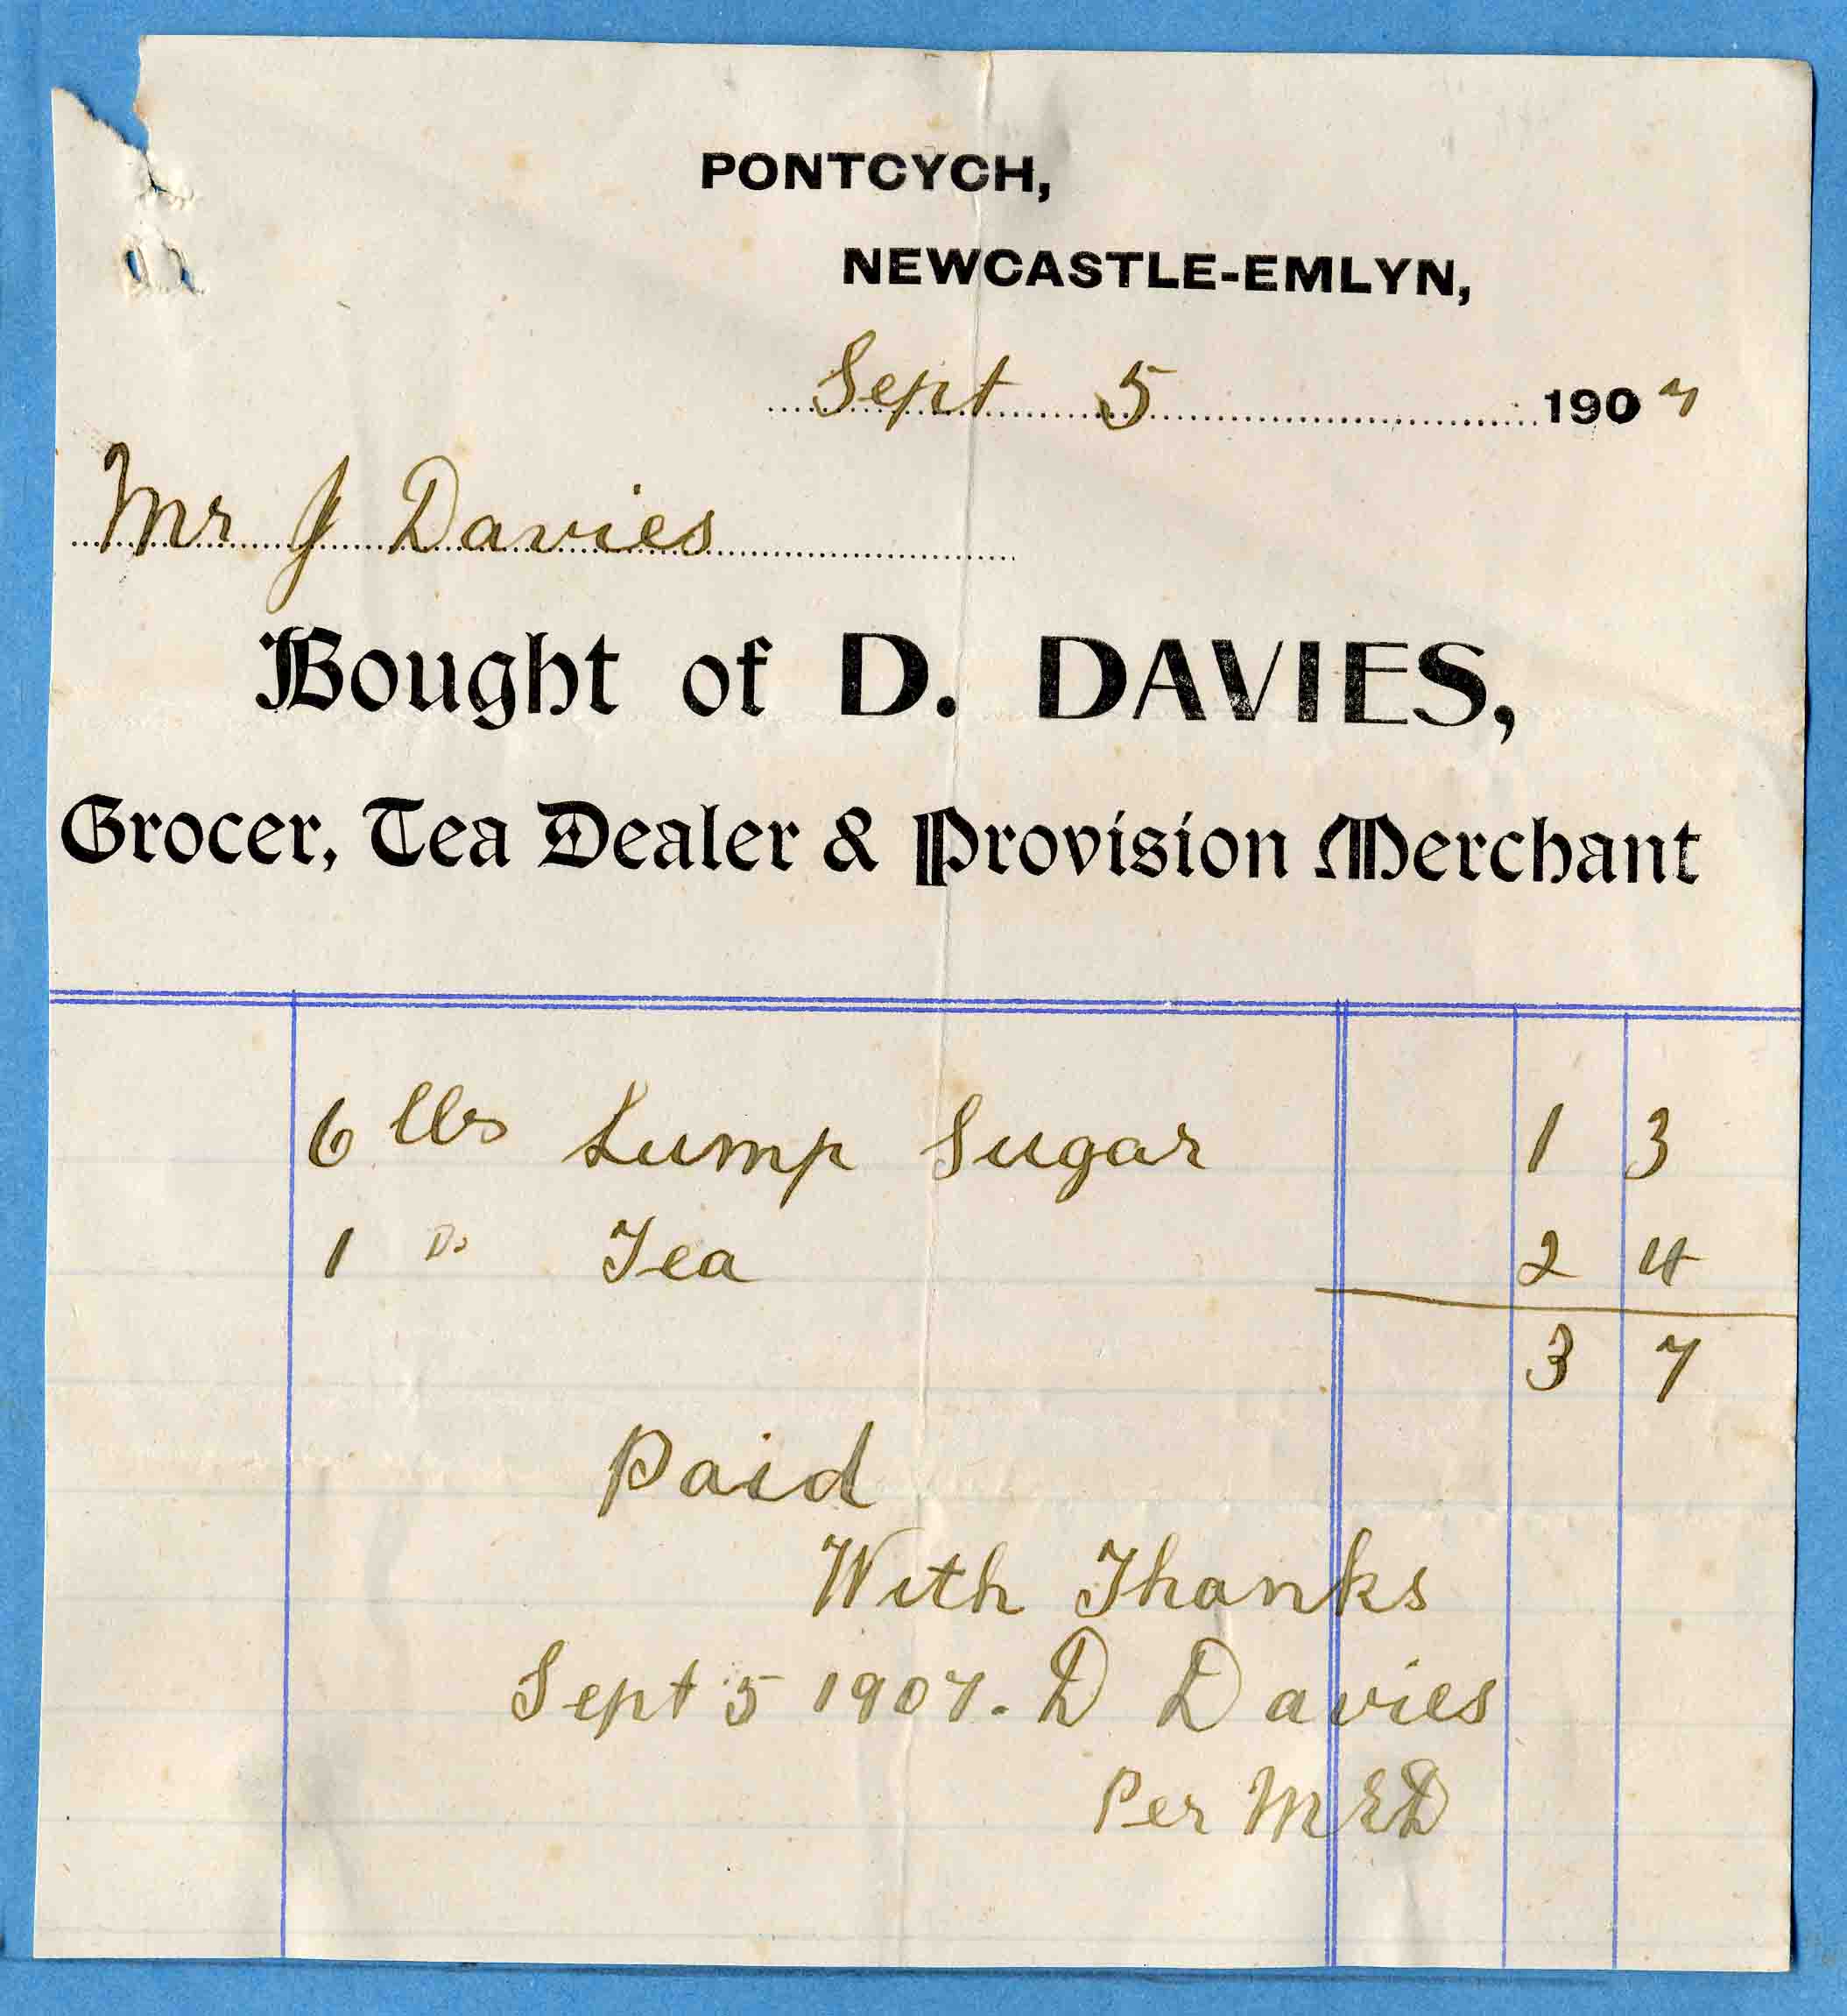 PONTCYCH,
NEWCASTLE-EMLYN,
Sept 5 1907
Mr J Davies
Bought of D. DAVIES,
Grocer, Tea Dealer & Provision Merchant
6 lbs Lump Sugar 1 3
1 Do Tea 2 4
3 7
Paid
With Thanks
Sept 5 1907. D Davies
Per MED